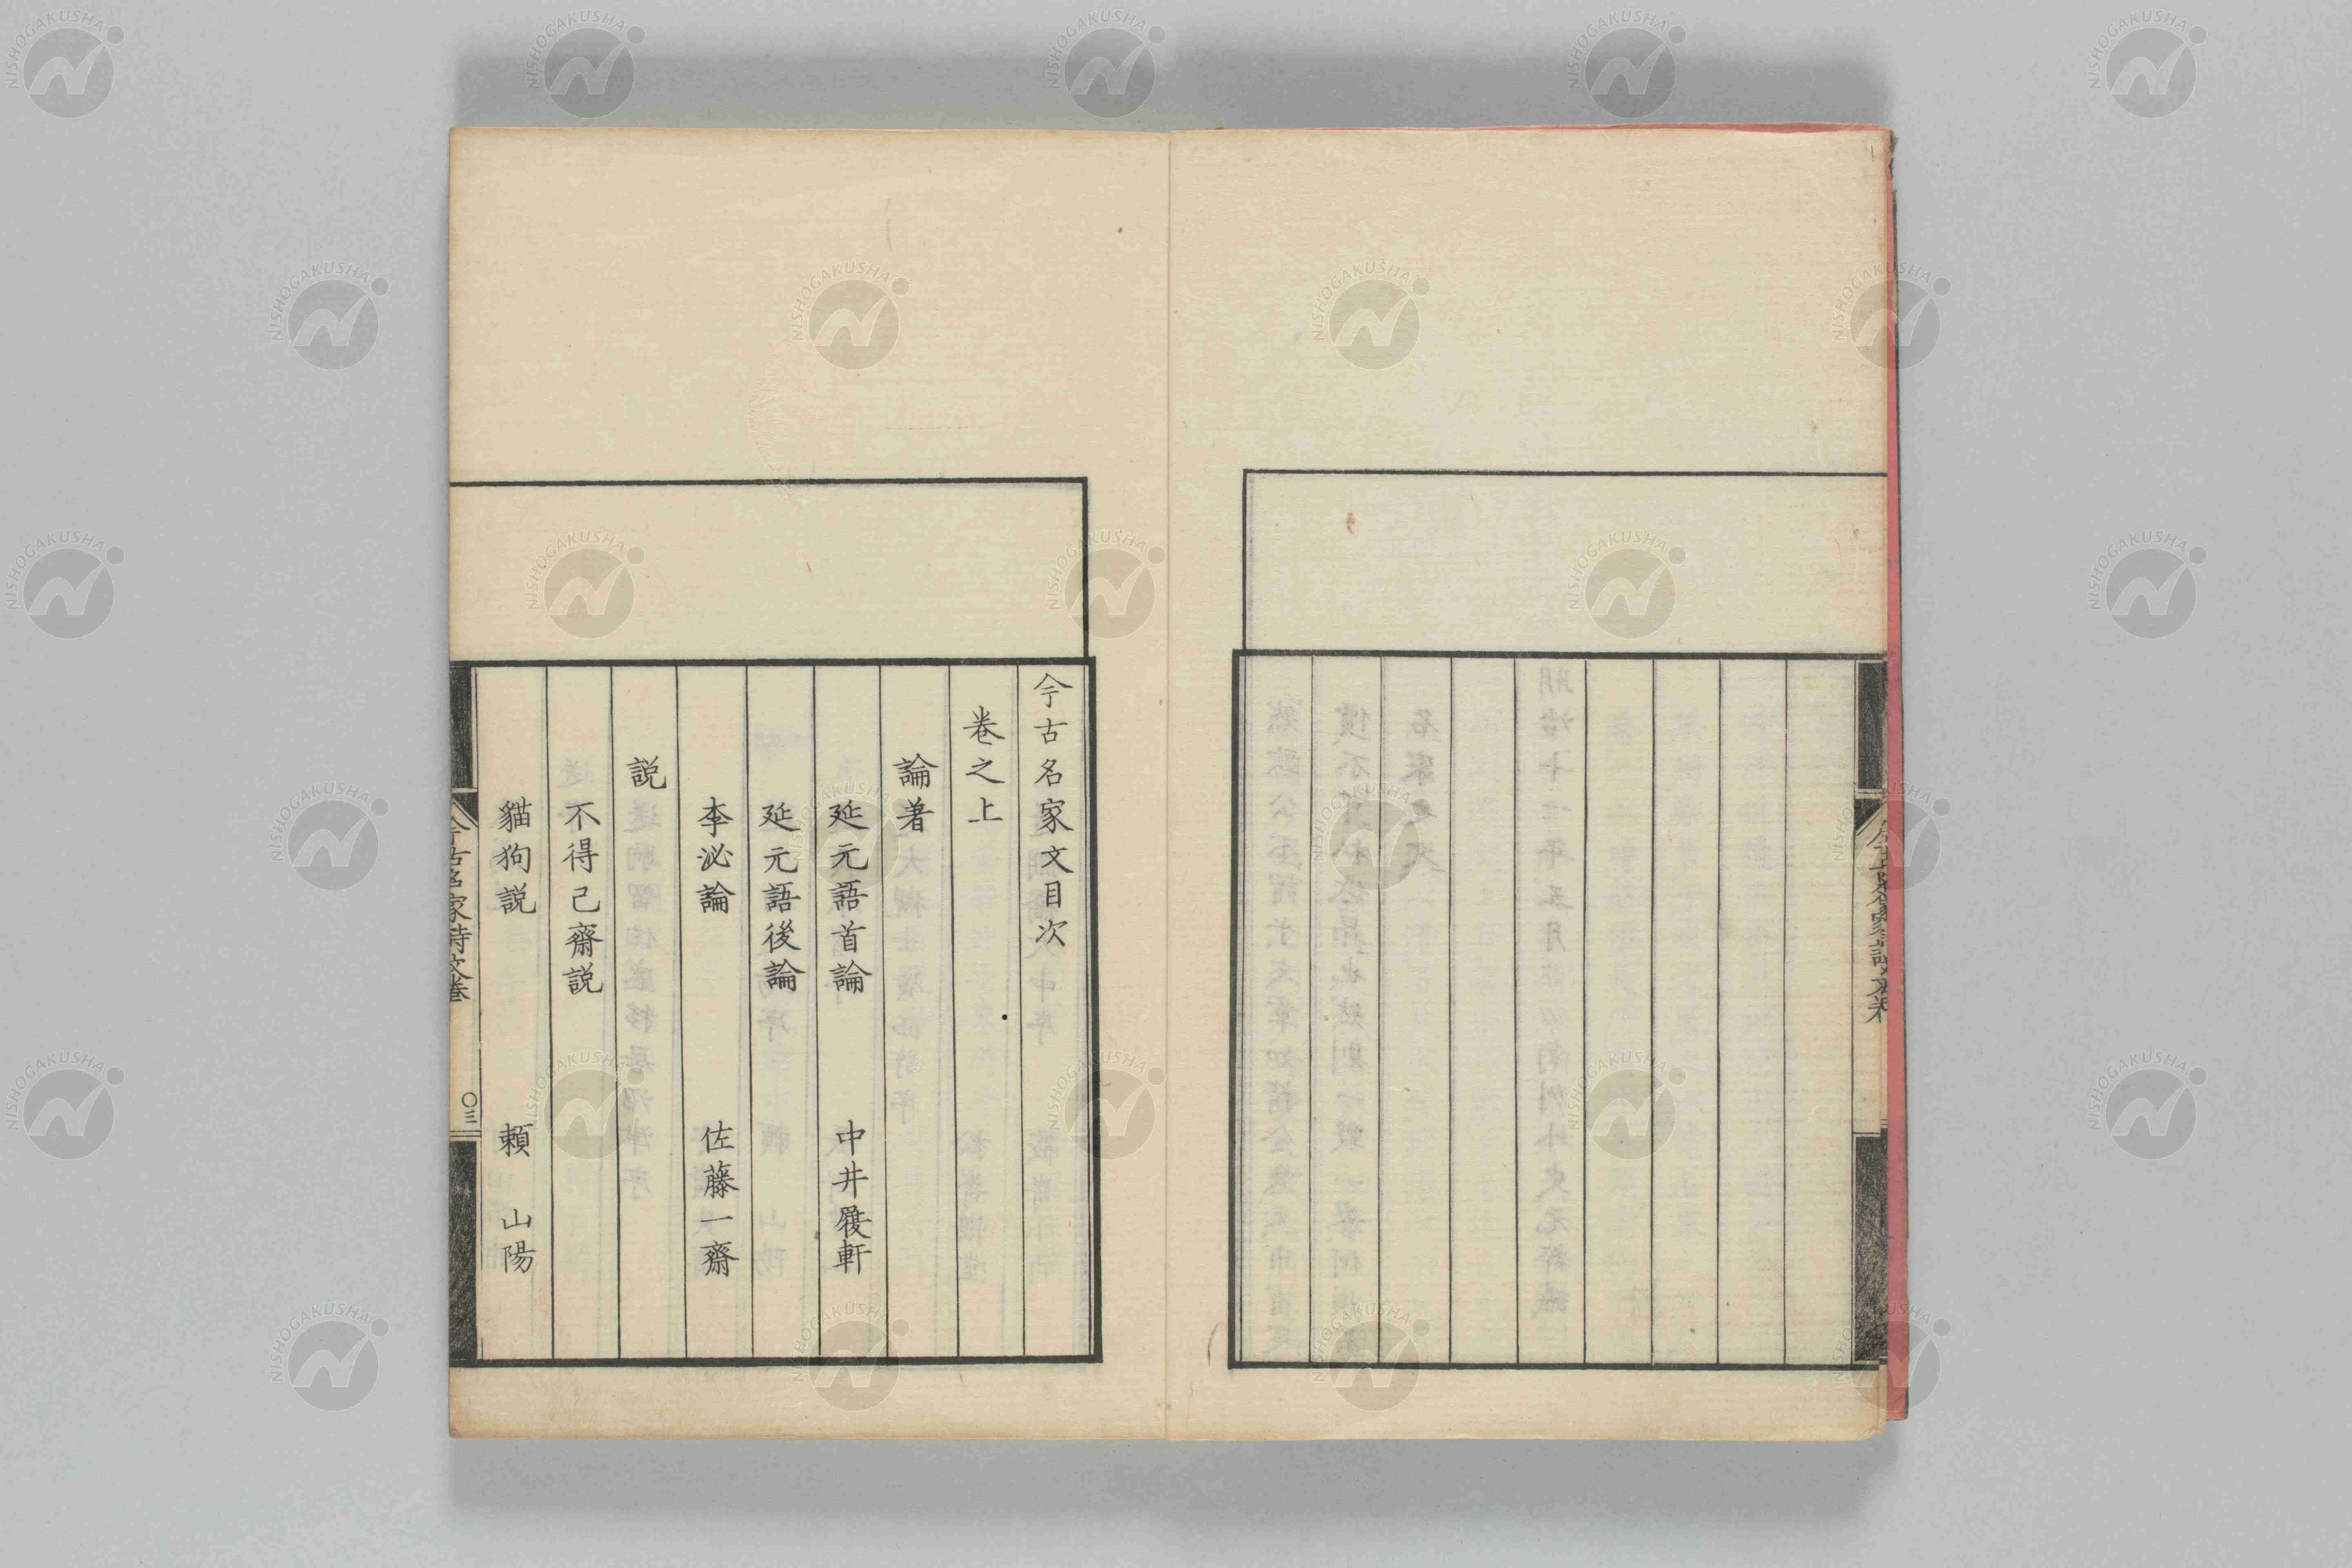 今古名家文目次
卷之上
論著
延元語首論 中井履軒
延元語後論
李泌論 佐藤一齋
説
不得已齋説
貓狗説 賴 山陽
今古名家詩文卷
〇三
NISHOGAKUSHA